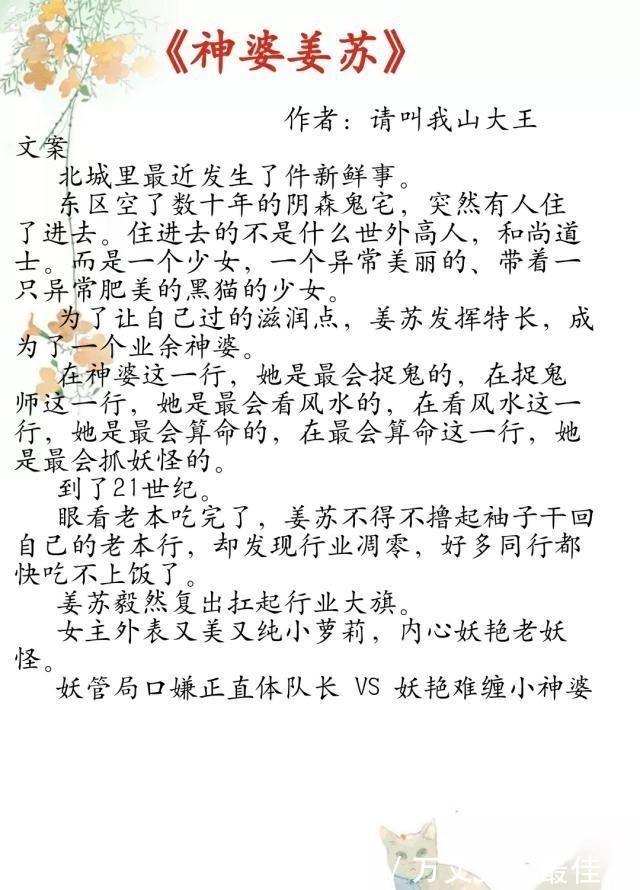 《神婆姜苏》
作者：请叫我山大王
文案
北城里最近发生了件新鲜事。
东区空了数十年的阴森鬼宅，突然有人住
了进去。住进去的不是什么世外高人，和尚道
士。而是一个少女，一个异常美丽的、带着一
只异常肥美的黑猫的少女。
为了让自己过的滋润点，姜苏发挥特长，成
为了一个业余神婆。
在神婆这一行，她是最会捉鬼的，在捉鬼
师这一行，她是最会看风水的，在看风水这一
行，她是最会算命的，在最会算命这一行，她
是最会抓妖怪的。
到了21世纪。
眼看老本吃完了，姜苏不得不撸起袖子干回
自己的老本行，却发现行业凋零，好多同行都
快吃不上饭了。
姜苏毅然复出扛起行业大旗。
女主外表又美又纯小萝莉，内心妖艳老妖
怪。
妖管局口嫌正直体队长 VS 妖艳难缠小神婆